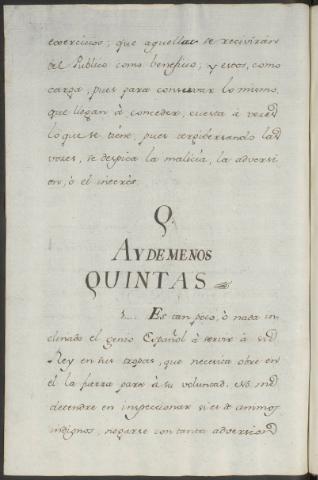 exercicios; que aquellas se recivirán
del Publico como beneficio; y estos, como
carga, pues para conservar lo mismo,
que llegan à conceder, cuesta a veces
lo que se tiene, pues tergiversando las
voces, se despica la malicia, la adversi
on, ò el interès.
Q.
AY DE MENOS
QUINTAS
1.... Es tan poco, ò nada in
clinado el genio Español à servir à su
Rey en sus tropas, que necesita obre en
èl la fuerza para su voluntad. No me
detendre en inspeccionar si es de animos
indignos, negarse con tanta adversion